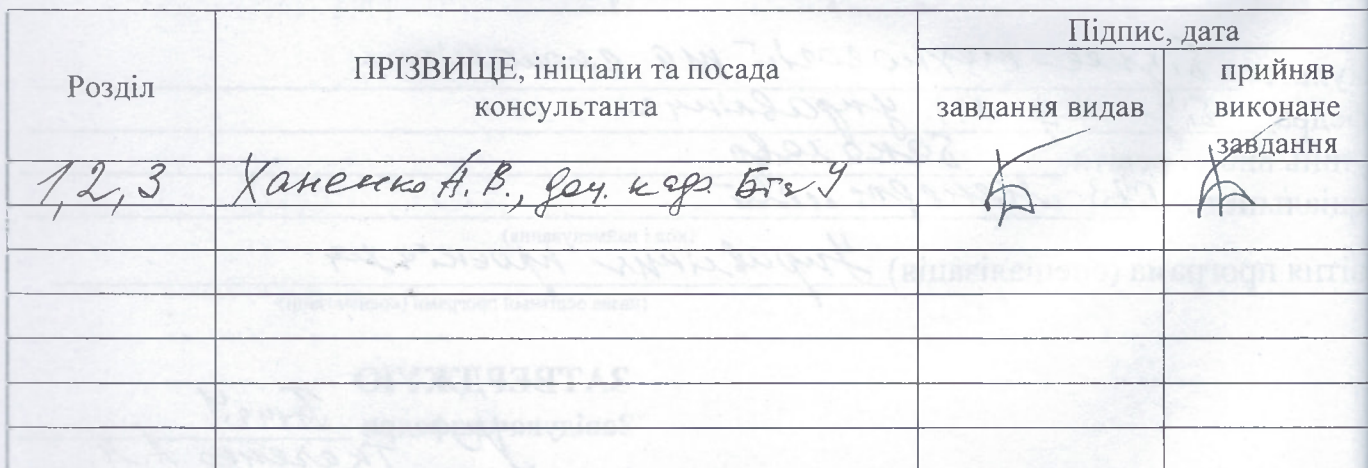 Розділ
ПРІЗВИЩЕ, ініціали та посада
консультанта
Підпис, дата
завдання видав
прийняв
виконане
завдання
1,2,3 Ханенко А.В., доц. каф. БтаУ